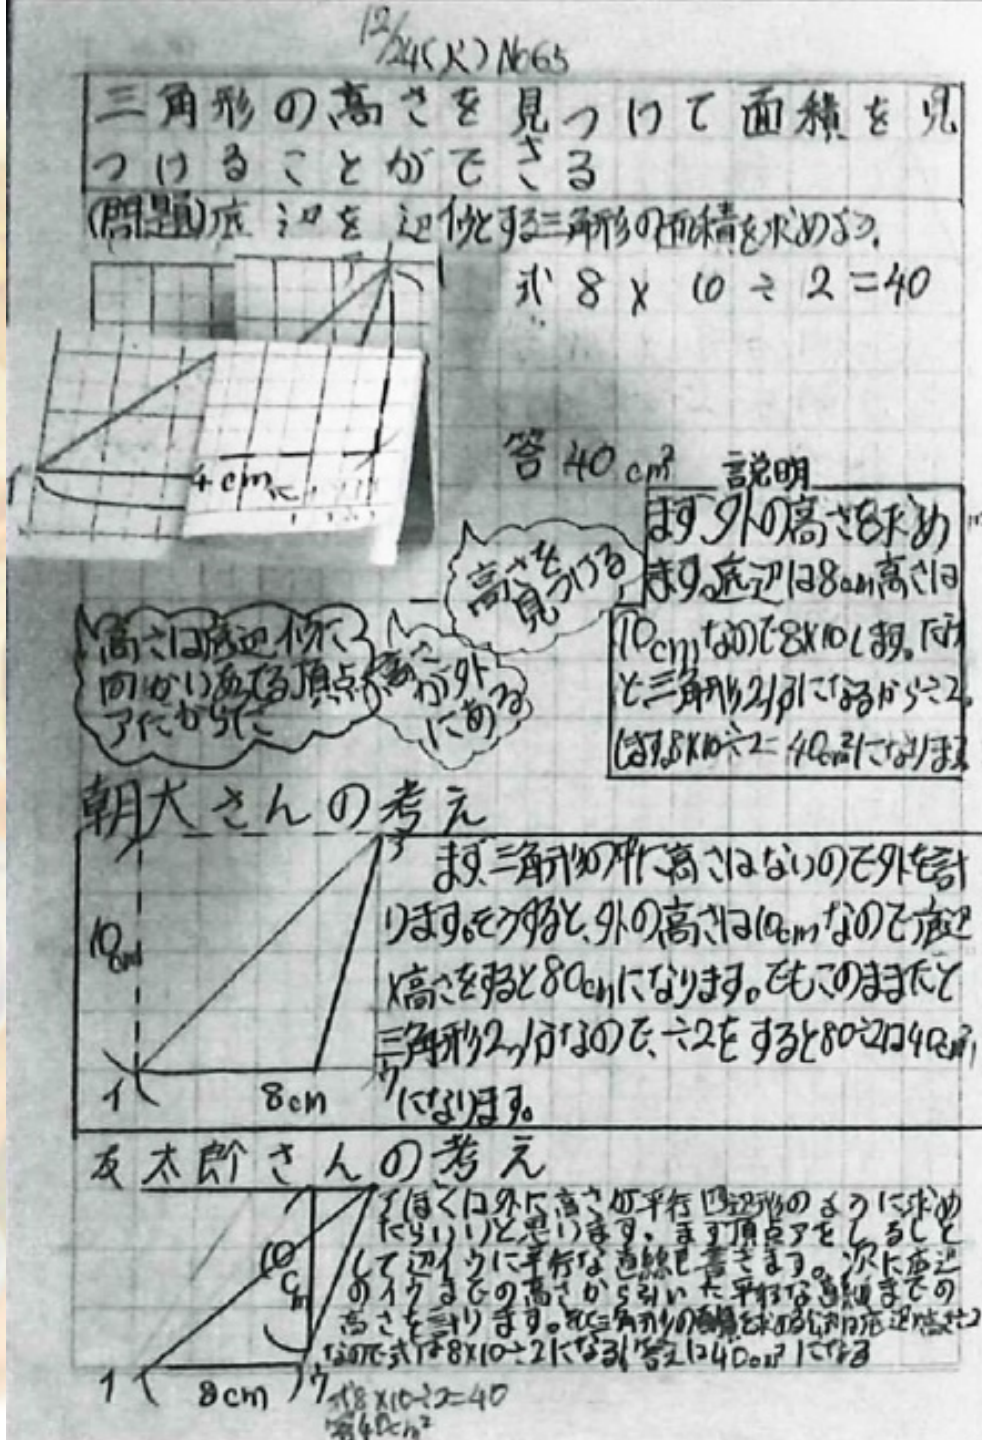 12/24(火) No65
三角形の高さを見つけて面積を見
つけることができる
(問題)底辺を辺イウとする三角形の面積を求めよう。
式 8 × 10 ÷ 2 = 40
4cm
答 40 cm²
説明
まず外の高さを求め
ます。底辺は8cm高さは
10cmなので8×10します。
と三角形2つ分になるから÷2
します。8×10÷2=40cm²になります
高さを
見つける
高さは底辺イウに
向かいあてる頂点
アにからに
高さ
が外
にある
朝大さんの考え
ア
10cm
イ
8cm
ウ
まず、三角形の中に高さはないので外を計
ります。そうすると、外の高さは10cmなので底辺
×高さをすると80cmになります。でもこのままだと
三角形2つ分なので、÷2をすると80÷2は40cm²
になります。
友太郎さんの考え
ア
10cm
イ
8cm
ウ
ぼくは外に高さが平行四辺形のように求め
たらいいと思います。まず頂点アをしるしと
して辺イウに平行な直線を書きます。次に底辺
のイウまでの高さから引いた平行な直線までの
高さを計ります。三角形の面積を求める公式は底辺×高さ÷2
なので式は8×10÷2になる。答えは40cm²になる
式8×10÷2=40
答40cm²